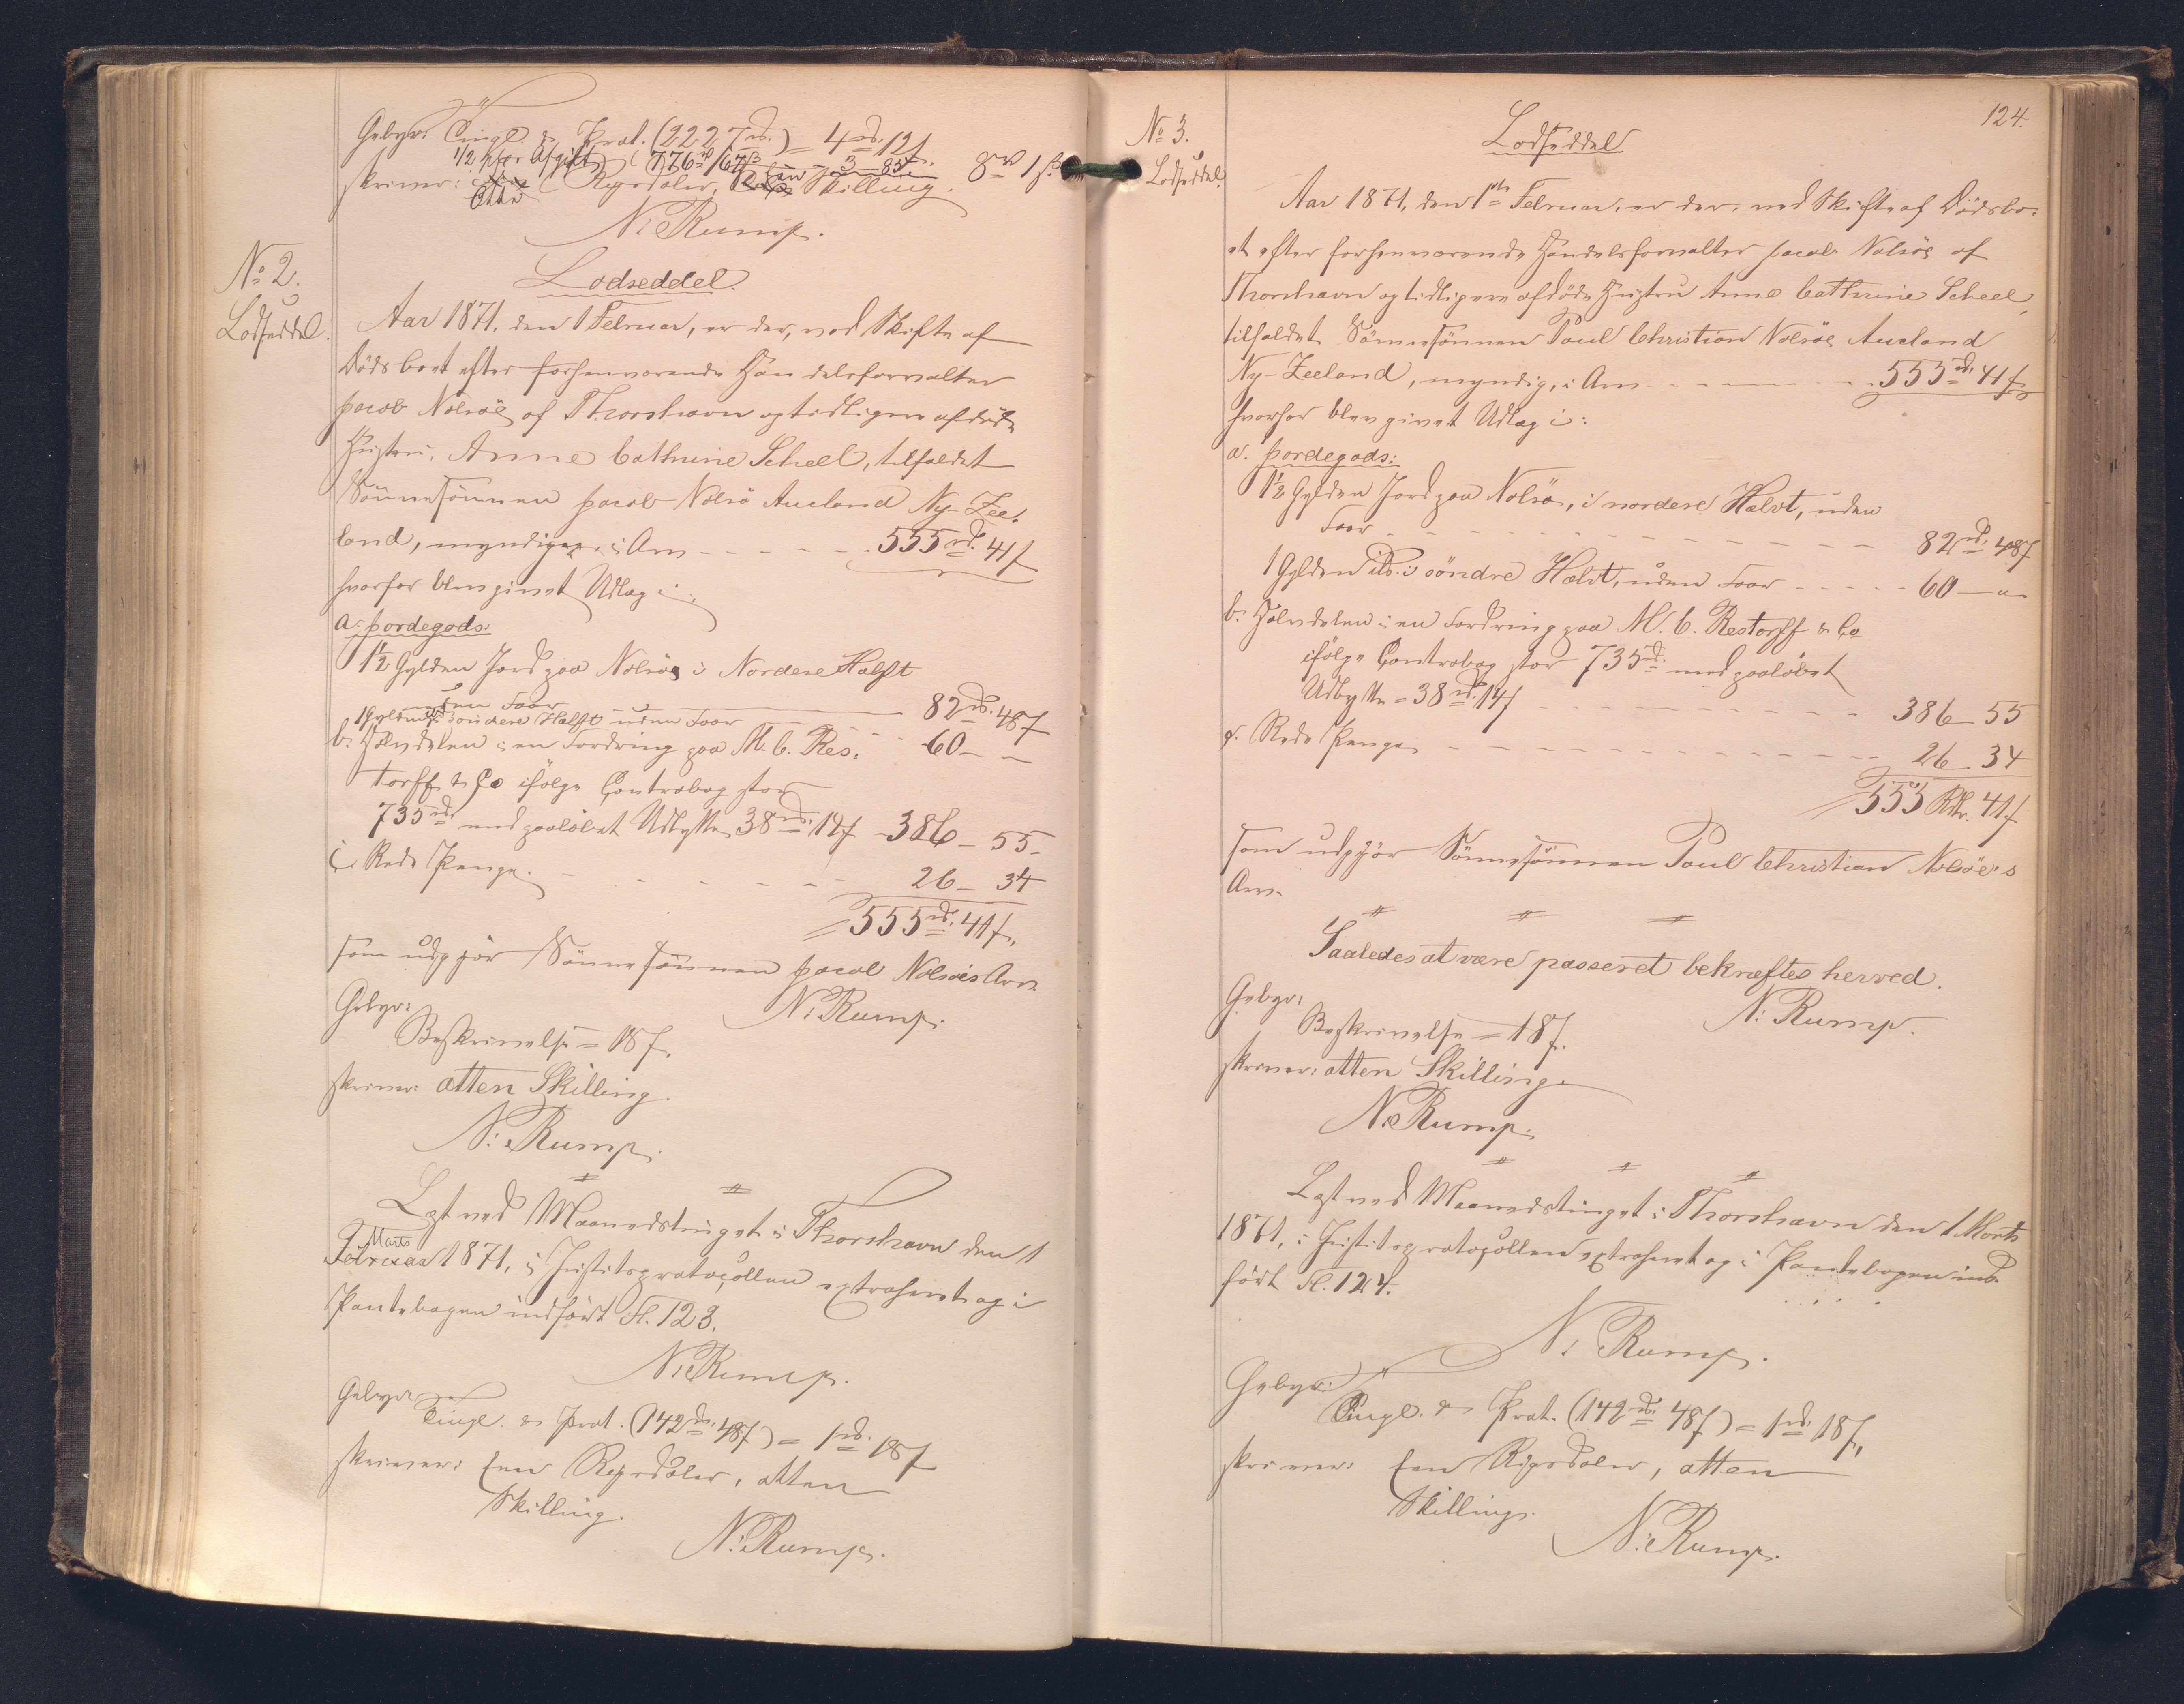 Gebyr: Tingl. & Prot. (2227rd.) = 4rd. 12ß
1/2 pCt. Afgift (776rd 67ß) 3 – 85
skriver: Otte Rigsdaler, een Skilling. 8rd 1ß
N. Rump.
No 2.
Lodseddel.
Lodseddel.
Aar 1871, den 1 Februar, er der, ved Skifte af
Dödsboet efter forhenværende Handelsforvalter
Jacob Nolsöe af Thorshavn og tidligere afdöde
Hustru, Anne Cathrine Scheel, tilfaldet
Sönnesönnen Jacob Nolsö Aucland Ny-Zee-
land, myndig, i Arv - - - - 555rd. 41ß
hvorfor blev givet Udlæg i:
a. Jordegods:
1½ Gylden Jord paa Nolsöe i Nordere Halft
uden Foer 82rd. 48ß
1 Gylden ibd. söndere Halft uden Foer - - - 60 – "
b. Halvdelen i en Fordring paa M. C. Res-
torff & Co ifölge Contrabog stor
735rd. med paalöbet Udbytte 38rd. 14ß - 386 – 55 -
c. Rede Penge. - - - - - - 26 – 34
555rd. 41ß.
som udgjör Sönnesönnen Jacob Nolsöes Arv.
N. Rump.
Gebyr:
Beskrivelse = 18ß.
skriver: atten Skilling.
N. Rump.
Læst ved Maanedstinget i Thorshavn den 1
Marts
Februar 1871, i Justitsprotocollen extraheret og i
Pantebogen indfört Fl. 123.
N. Rump.
Gebyr:
Tingl. & Prot. (142rd. 48ß) = 1rd. 18ß
skriver: Een Rigsdaler, atten
Skilling.
N. Rump.
124.
No 3.
Lodseddel.
Lodseddel
Aar 1871, den 1ste Februar, er der, ved Skifte af Dödsbo-
et efter forhenværende Handelsforvalter Jacob Nolsöe af
Thorshavn og tidligere afdöde Hustru Anne Cathrine Scheel,
tilfaldet Sönnesönnen Poul Christian Nolsöe Aucland
Ny-Zeeland, myndig, i Arv - - - - - 555rd. 41ß
hvorfor blev givet Udlæg i:
a. Jordegods:
1½ Gylden Jord paa Nolsö, i nordere Halvt, uden
Foer - - - - - - - - 82rd. 48ß
1 Gylden ibd. i söndre Halvt, uden Foer - - - - 60 – "
b. Halvdelen i en Fordring paa M. C. Restorff & Co
ifölge Contrabog stor 735rd. med paalöbet
Udbytte = 38rd. 14ß - - - - - - 386 – 55
c. Rede Penge - - - - - - - - 26 – 34
555 Rdlr. 41ß
som udgjör Sönnesönnen Poul Christian Nolsöe's
Arv.
Saaledes at være passeret bekræftes herved.
N. Rump.
Gebyr:
Beskrivelse = 18ß.
skriver: atten Skilling.
N. Rump.
Læst ved Maanedstinget i Thorshavn den 1 Marts
1871, i Justitsprotocollen extraheret og i Pantebogen ind-
fört Fl. 124.
N. Rump.
Gebyr:
Tingl. & Prot. (142rd. 48ß) = 1rd. 18ß,
skriver: Een Rigsdaler, atten
Skilling.
N. Rump.